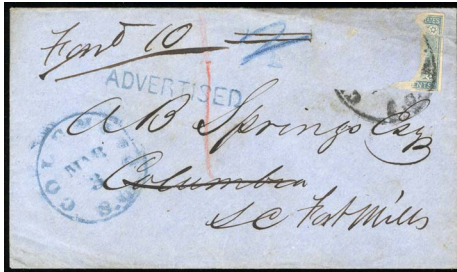 Ford 10
2
ADVERTISED
A B Springs Esq
Columbia
SC Fort Mills
COLUMBIA S.C.
MAR
3